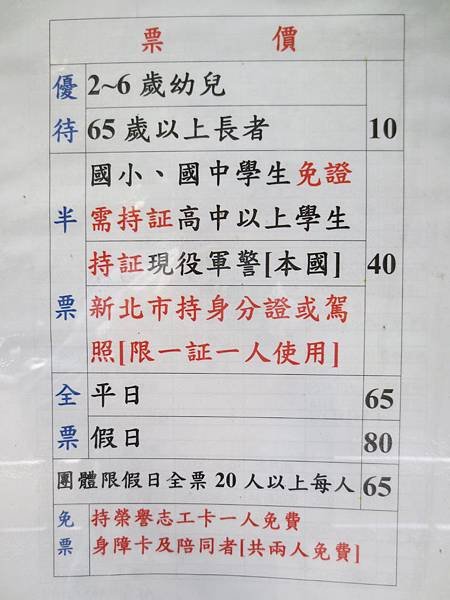 票價
優待
2~6 歲幼兒
65 歲以上長者
10
半票
國小、國中學生免證
需持証高中以上學生
持証現役軍警[本國]
新北市持身分證或駕
照[限一証一人使用]
40
全票
平日
65
假日
80
團體限假日全票 20 人以上每人
65
免票
持榮譽志工卡一人免費
身障卡及陪同者[共兩人免費]